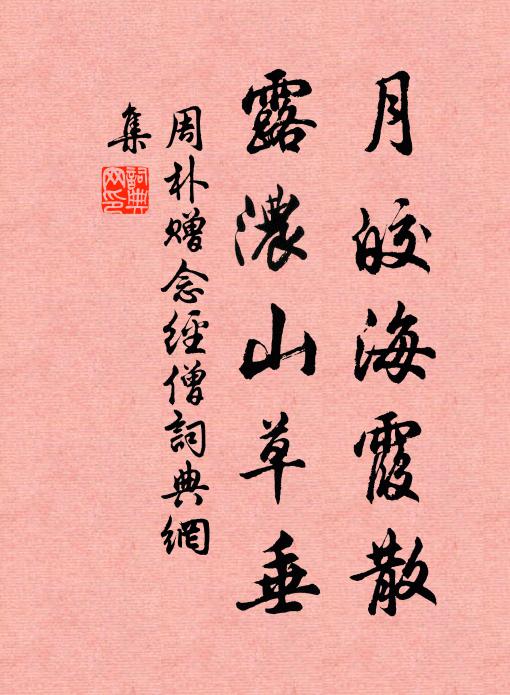 月皎海霞散
露濃山草垂
周朴赠念經僧詞典網
集
詞典网印